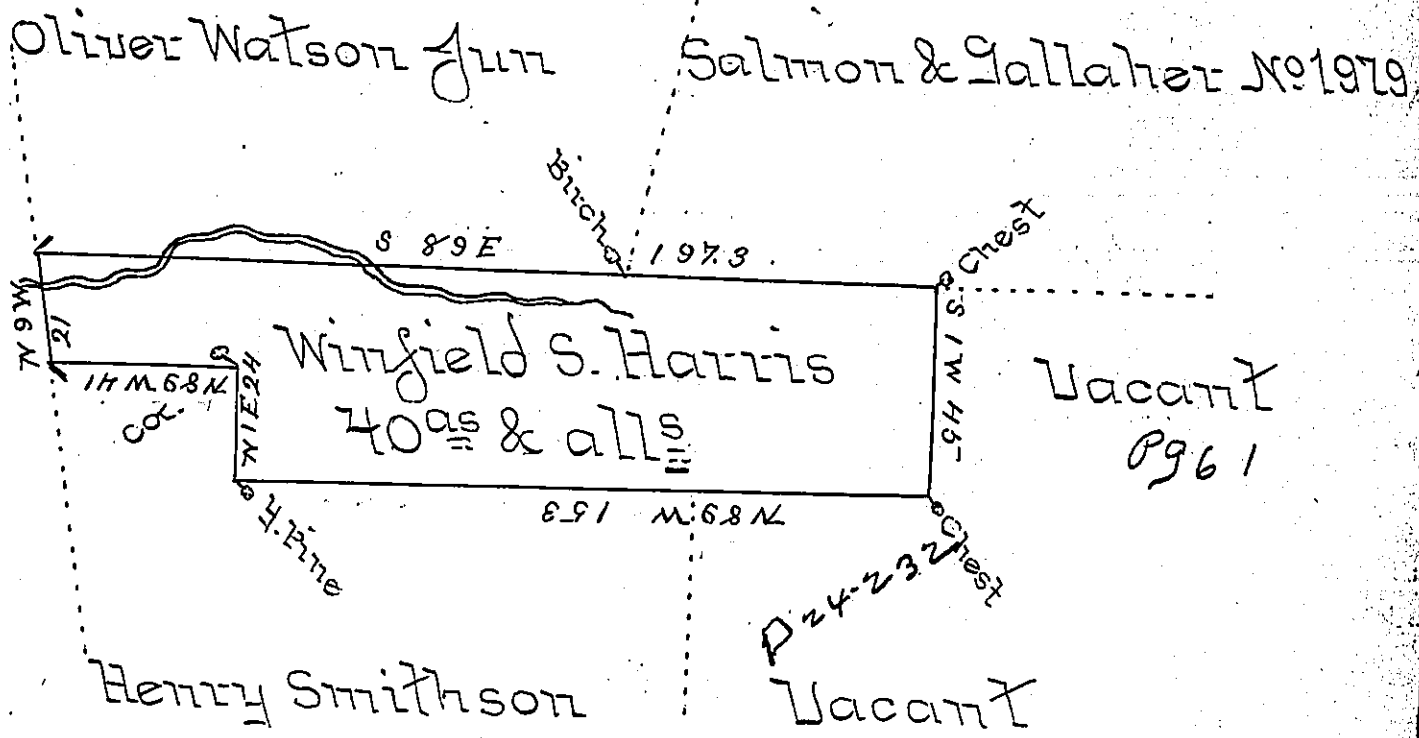 Oliver Watson Jun
Salmon & Gallaher No 1979
Birch
Chest
S 89 E
197.3
N 9 W
21
N 89 W 41
Col.
N 1 E 24
Winfield S. Harris
40 as & alls
S 1 W 45
Vacant
Pg 61
Y. Pine
N 89 W 153
Chest
P 24-232
Henry Smithson
Vacant